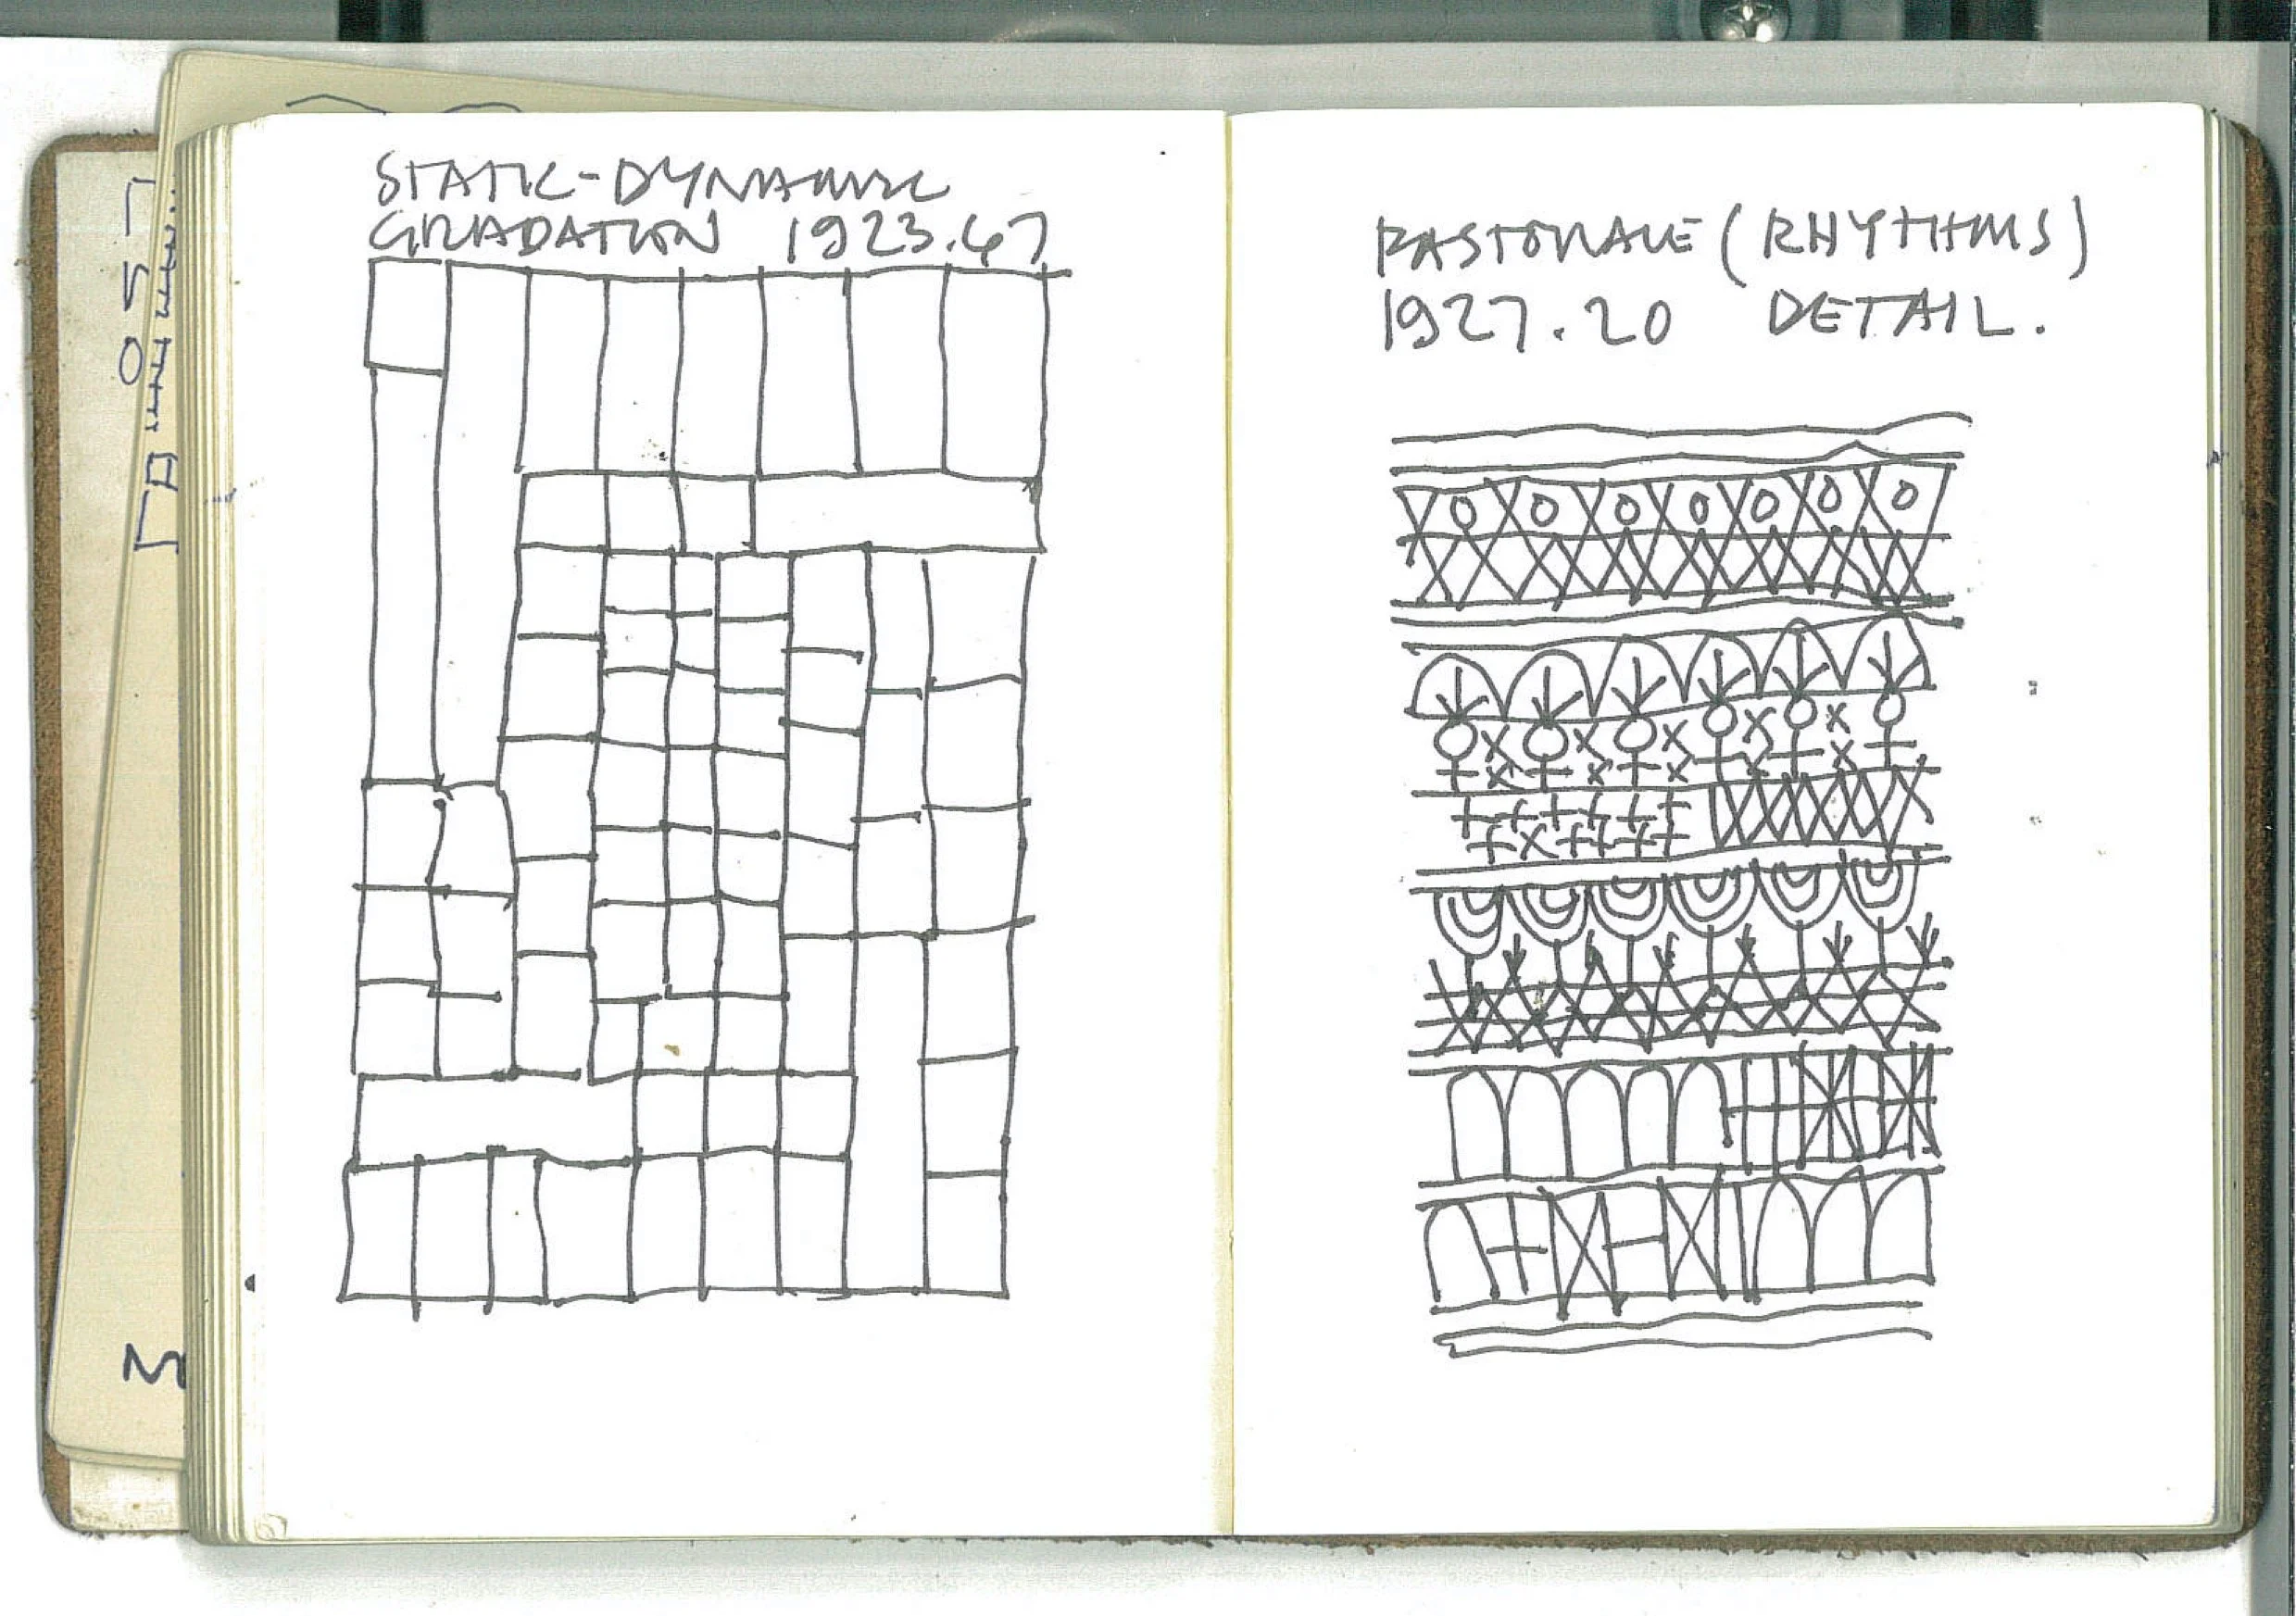 STATIC-DYNAMIC
GRADATION 1923.67
PASTORALE (RHYTHMS)
1927.20 DETAIL.